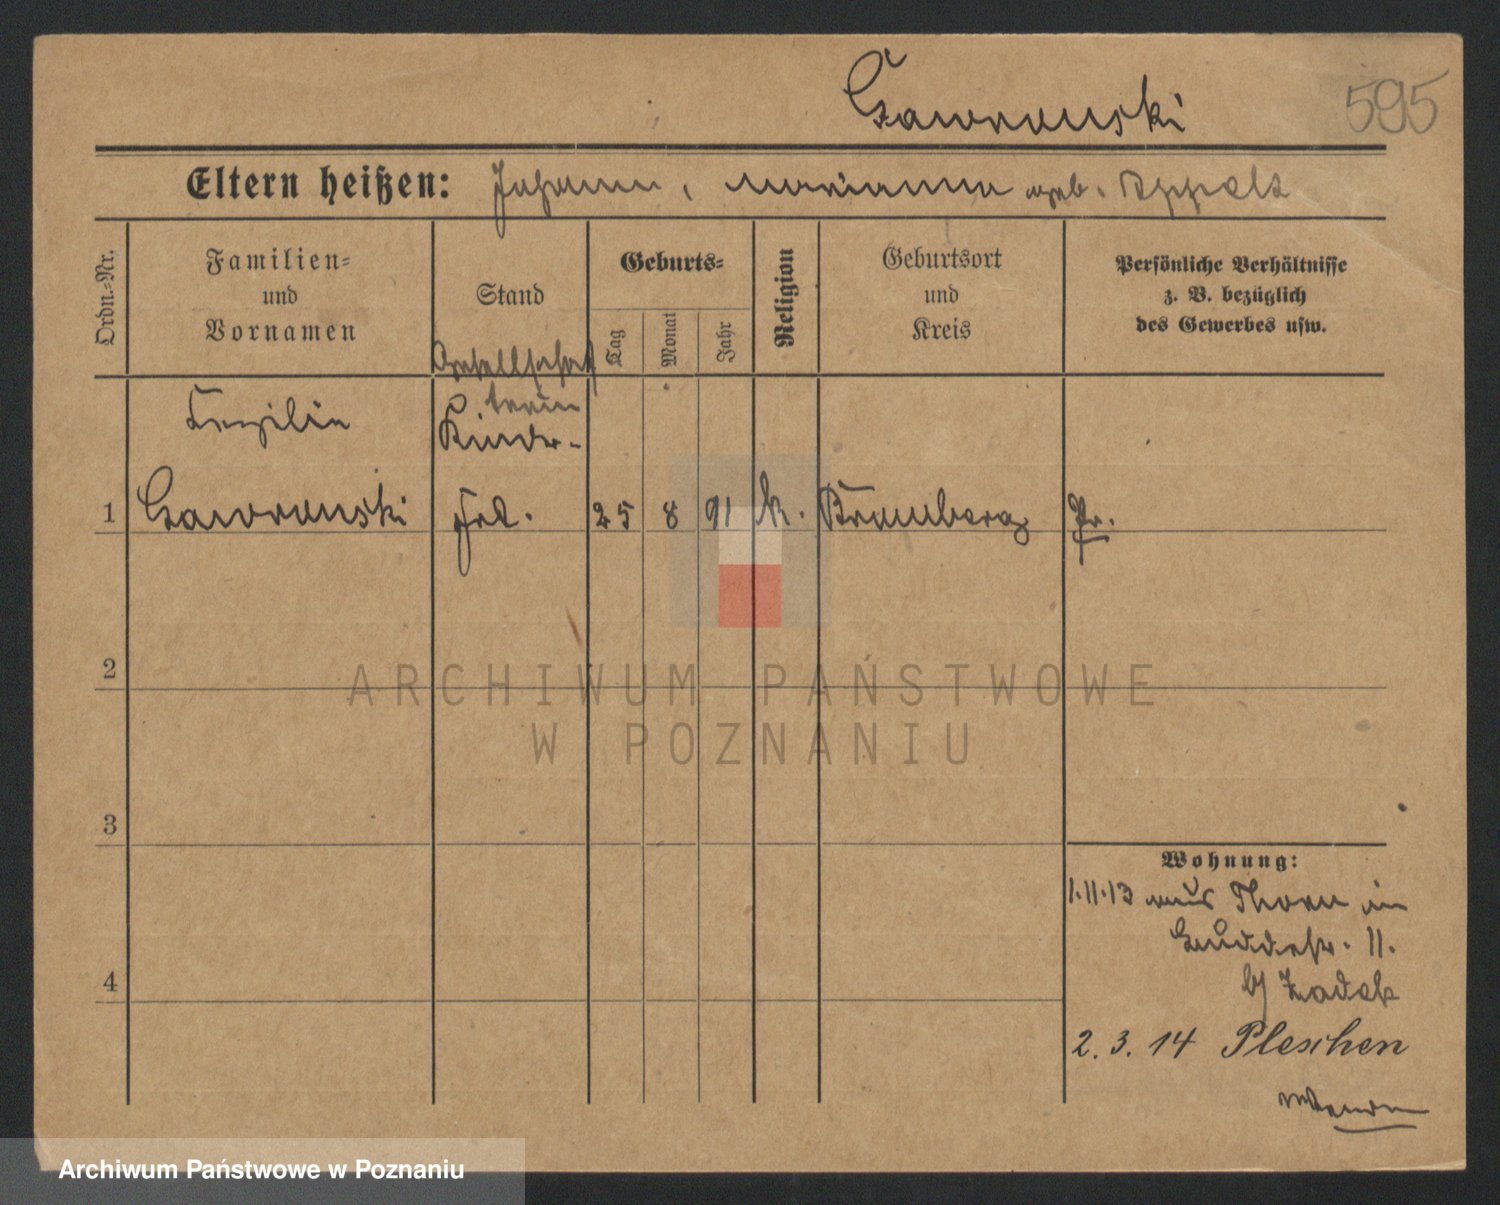 Gawronski
595
Eltern heißen: Johann, Marianna geb. Appelt
Ordn.-Nr.
Familien-
und
Vornamen
Stand
Geburts-
Tag
Monat
Jahr
Religion
Geburtsort
und
Kreis
Persönliche Verhältnisse
z. B. bezüglich
des Gewerbes usw.
Gesellschaf
terin
Cezilie
Kinder-
1 Gawronski frl. 25 8 91 k. Bromberg Pr.
2
3
4
Wohnung:
1.11.13 aus Thorn in
11.
b/ Zadek
2. 3. 14 Pleschen
ARCHIWUM PAŃSTWOWE
W POZNANIU
Archiwum Państwowe w Poznaniu